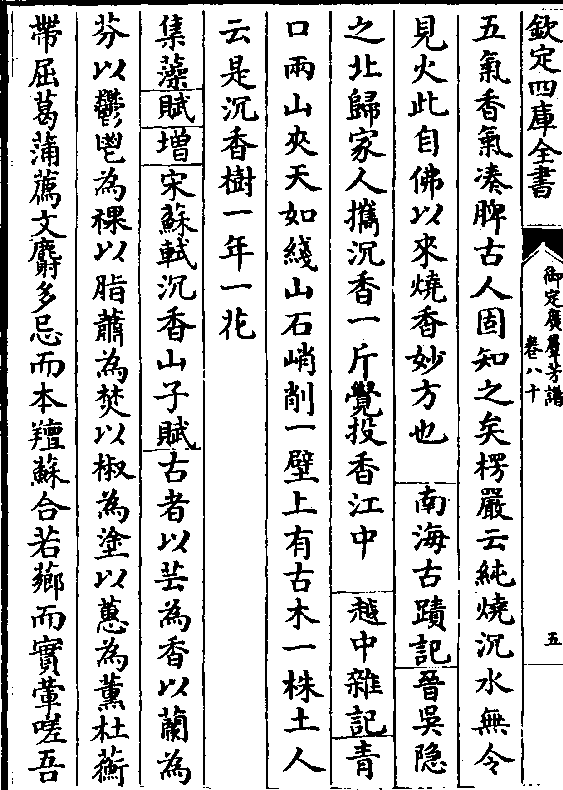 欽定四庫全書
御定廣羣芳譜
卷八十
五
五氣香氣凑脾古人固知之矣楞嚴云純燒沉水無令
見火此自佛以來燒香妙方也 南海古蹟記晉吳隐
之北歸家人攜沉香一斤覺投香江中 越中雜記青
口兩山夾天如綫山石峭削一壁上有古木一株土人
云是沉香樹一年一花
集藻賦增宋蘇軾沉香山子賦古者以芸為香以蘭為
芬以鬱鬯為祼以脂蕭為焚以椒為塗以蕙為薰杜蘅
帶屈菖蒲薦文麝多忌而本羶蘇合若薌而實葷嗟吾